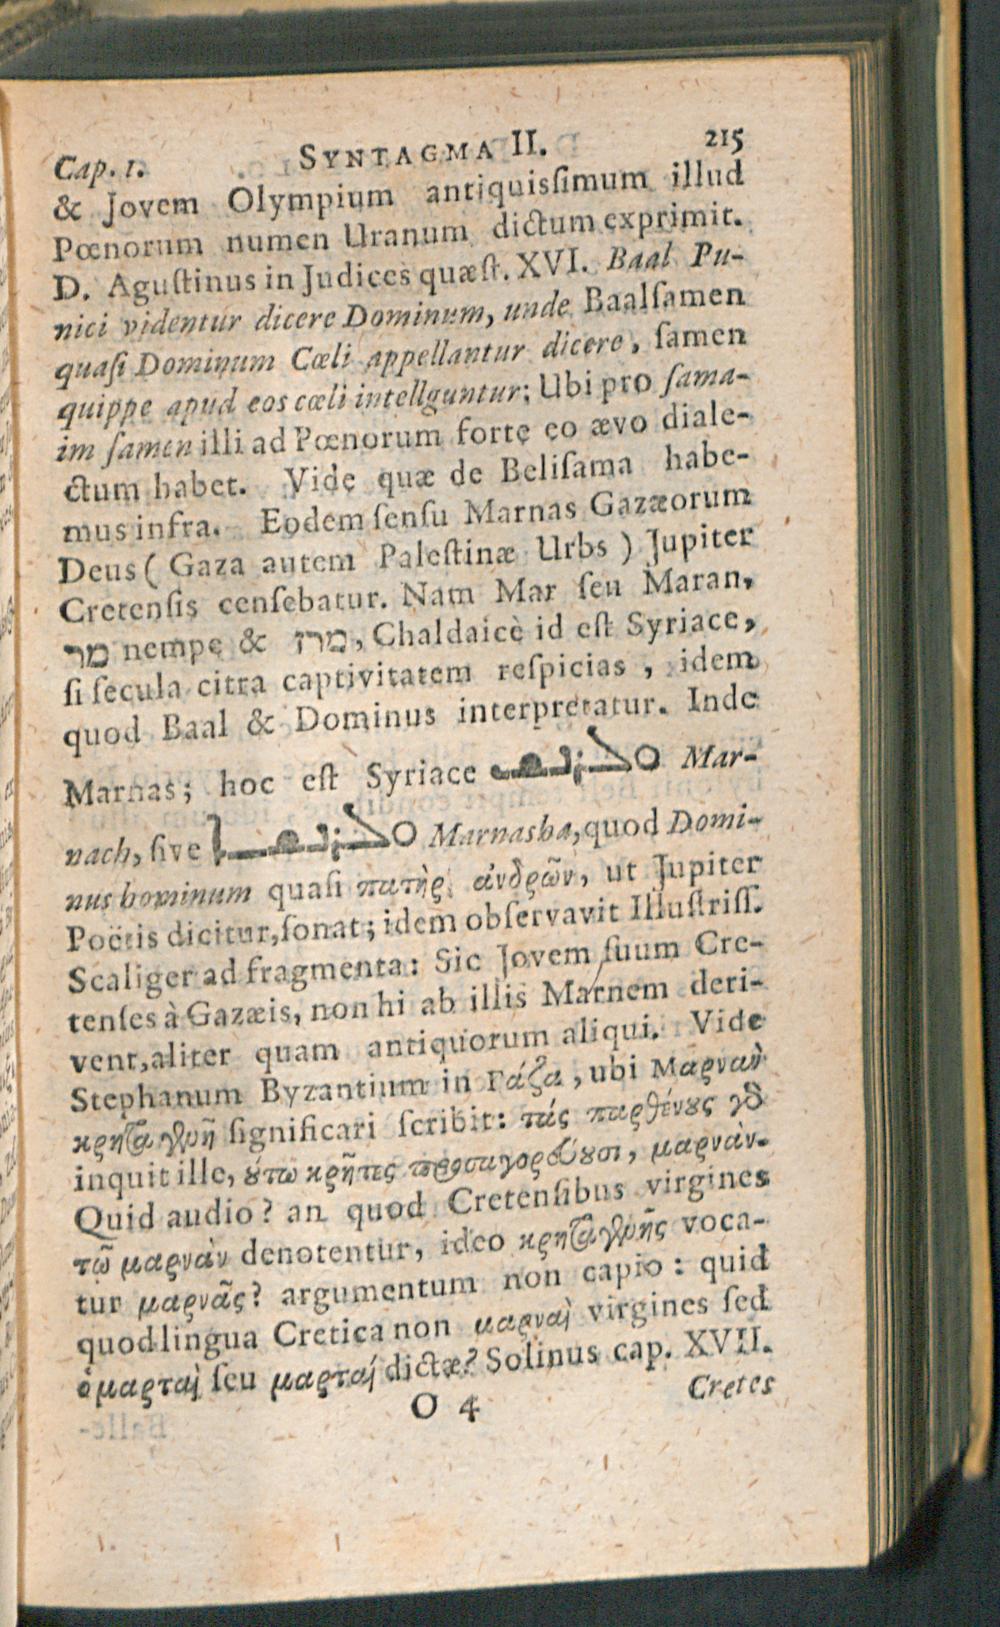 Cap. 1. SYNTAGMA II. 215
& Jovem Olympium antiquisſimum illud
Pœnorum numen Uranum dictum exprimit.
D. Aguſtinus in Judices quæſt. XVI. Baal Pu-
nici videntur dicere Dominum, unde Baalſamen
quaſi Dominum Cœli appellantur dicere, ſamen
quippe apud eos cœli intellguntur; Ubi pro ſama-
im ſamen illi ad Pœnorum forte eo ævo diale-
ctum habet. Vide quæ de Beliſama habe-
mus infra. Eodem ſenſu Marnas Gazæorum
Deus ( Gaza autem Paleſtinæ Urbs ) Jupiter
Cretenſis cenſebatur. Nam Mar ſeu Maran,
מר nempe & מרן, Chaldaicè id eſt Syriace,
ſi ſecula citra captivitatem reſpicias, idem
quod Baal & Dominus interpretatur. Inde
Marnas; hoc eſt Syriace Mar-
nach, ſive Marnasha, quod Domi-
nus hominum quaſi πατὴρ ἀνδρῶν, ut Jupiter
Poëtis dicitur, ſonat; idem obſervavit Illuſtriſſ.
Scaliger ad fragmenta: Sic Jovem ſuum Cre-
tenſes à Gazæis, non hi ab illis Marnem deri-
vent, aliter quam antiquorum aliqui. Vide
Stephanum Byzantium in Γάζα, ubi Μαρνᾶν
κρηταγενῆ ſignificari ſcribit: τάς παρθένους γὸ
inquit ille, ούτω κρῆτες προσαγορεύουσι, μαρνάν.
Quid audio? an quod Cretenſibus virgines
τῶ μαρνὰν denotentur, ideo κρηταγενῆς voca-
tur μαρνᾶς? argumentum non capio: quid
quod lingua Cretica non μαρναὶ virgines ſed
ὁμαρταὶ ſeu μαρταί dictæ? Solinus cap. XVII.
O 4 Cretes